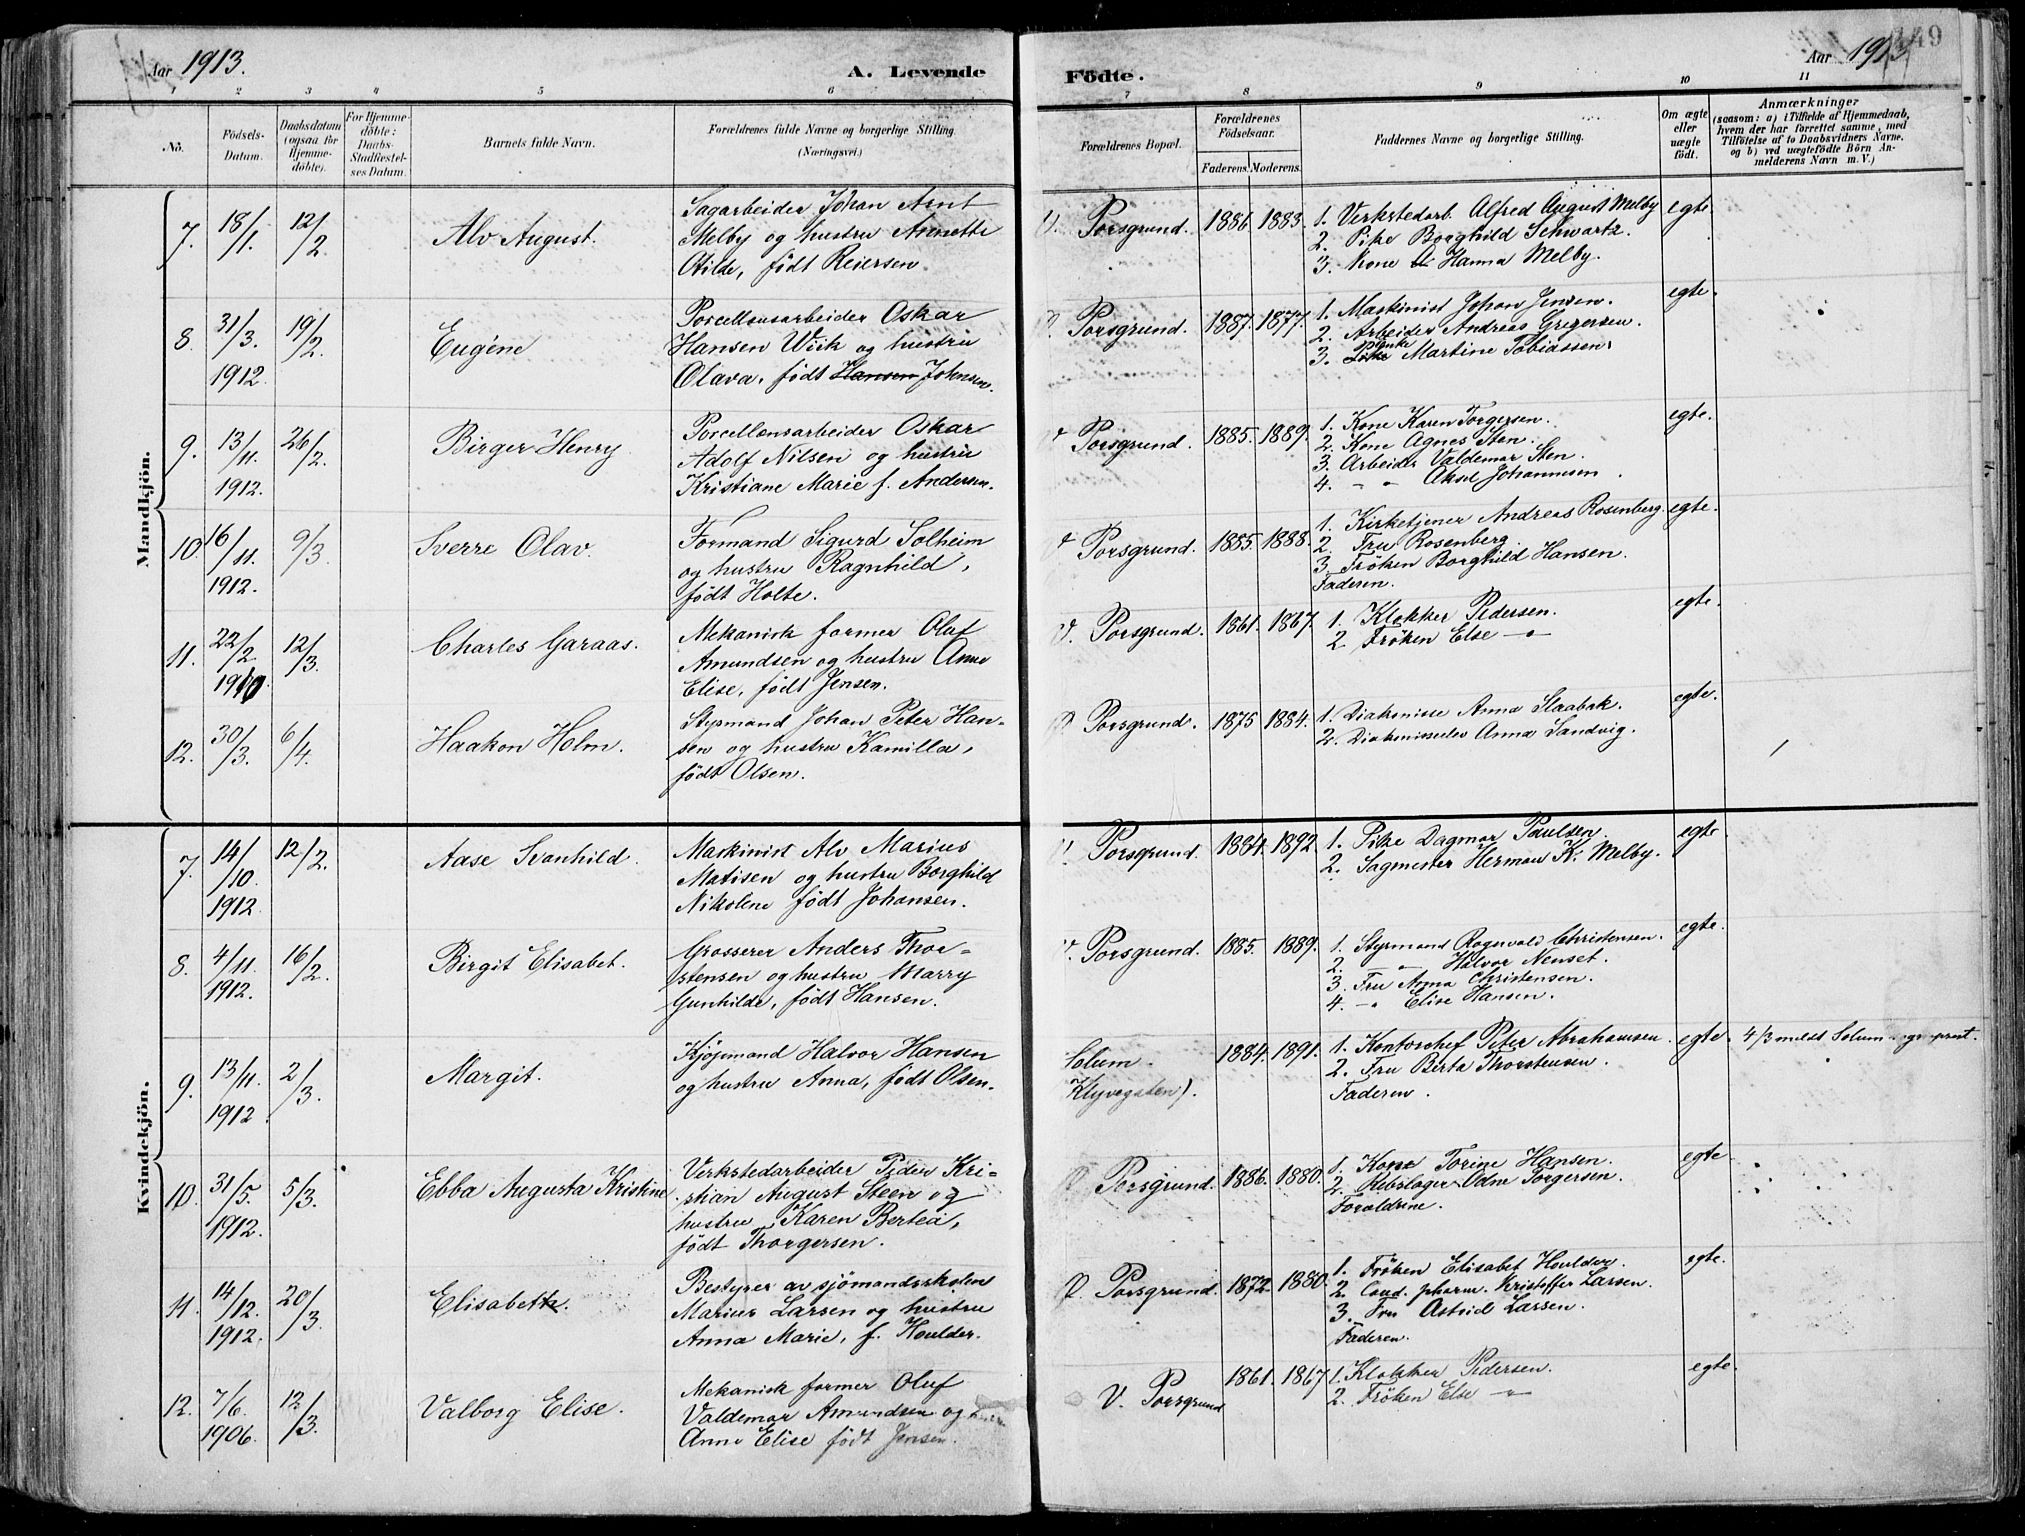 Aar 1913.
A. Levende
1 2 3 4 5 6
No.
Födsels-Datum.
Daabsdatum (ogsaa for Hjemme-döbte).
For Hjemme-döbte: Daabs-Stadfæstel-ses Datum.
Barnets fulde Navn.
Forældrenes fulde Navne og borgerlige Stilling. (Næringsvei.)
Mandkjön.
7. 18/1. 12/2 Alv August.
Sagarbeider Johan Arnt
Melby og hustru Annette
Otilde, födt Reiersen.
8. 31/3. 1912. 19/2. Eugéne
Porcellænsarbeider Oskar
Hansen Wiik og hustru
Olava, födt Hansen Johnsen.
9. 13/11. 1912. 26/2. Birger Henry
Porcellænsarbeider Oskar
Adolf Nilsen og hustru
Kristiane Marie f. Andersen.
10. 16/11. 1912. 9/3. Sverre Olav.
Formand Sigurd Solheim
og hustru Ragnhild,
födt Holte.
11. 22/2 1910. 12/3. Charles Garaas.
Mekanisk former Oluf
Amundsen og hustru Anne
Elise, födt Jensen.
12. 30/3. 6/4. Haakon Holm.
Styrmand Johan Peter Han-
sen og hustru Kamilla,
födt Olsen.
Kvindekjön.
7. 14/10. 1912 12/2. Aase Svanhild.
Maskinist Alv Marius
Matisen og hustru Borghild
Nikoline födt Johansen.
8. 4/11. 1912. 16/2. Birgit Elisabet.
Grosserer Anders Thor-
stensen og hustru Marry
Gunhilde, födt Hansen.
9. 13/11. 1912 2/3. Margit.
Kjöpmand Halvor Hansen
og hustru Anna, födt Olsen.
10. 31/5. 1912. 5/3. Ebba Augusta Kristine
Verkstedarbeider Peder Kri-
stian August Steen og
hustru Karen Bertea,
födt Thorgersen.
11. 14/12. 1912. 20/3. Elisabeth.
Bestyrer av sjömandsskolen
Marius Larsen og hustru
Anna Marie, f. Houlder.
12. 7/6. 1906. 12/3. Valborg Elise.
Mekanisk former Oluf
Valdemar Amundsen og
Anne Elise födt Jensen.
149
Födte.
Aar 1913
7 8 9 10 11
Forældrenes Bopæl.
Forældrenes Födselsaar.
Faderens. Moderens.
Faddernes Navne og borgerlige Stilling.
Om ægte eller uægte födt.
Anmærkninger
(saasom: a) i Tilfælde af Hjemmedaab,
hvem der har forrettet samme, med
Tilföielse af to Daabsvidners Navne.
og b) ved uægtefödte Börn An-
melderens Navn m. V.)
V. Porsgrund. 1886 1883.
1. Verkstedarb. Alfred August Melby egte.
2. Pike Borghild Schwartz.
3. Kone Hanna Melby.
Porsgrund. 1887. 1877.
1. Maskinist Johan Jensen. egte.
2. Arbeider Andreas Gregersen.
3. Martine Tobiassen.
Porsgrund. 1885. 1889.
1. Kone Karen Torgersen. egte.
2. Kone Agnes Sten.
3. Arbeider Valdemar Sten.
4. — " — Aksel Johannesen.
V Porsgrund. 1885. 1888.
1. Kirketjener Andreas Rosenberg. egte.
2. Fru Rosenberg.
3. Fröken Borghild Hansen.
Faderen.
V. Porsgrund. 1861. 1867.
1. Klokker Pedersen. egte.
2 Fröken Else — " —
Porsgrund. 1875 1884.
1. Diakonisse Anna Staabek. egte.
2. Diakonisseelev Anna Sandvig.
Porsgrund. 1884. 1892
1. Pike Dagmar Paulsen. egte.
2. Sagmester Herman K. Melby.
V. Porsgrund. 1885. 1889.
1. Styrmand Ragnvald Christensen. egte.
2. — " — Halvor Nenset.
3. Fru Anna Christensen.
4. — " Elise Hansen.
Solum
Klyvegaten).
1884. 1891.
1. Kontorchef Peter Abrahamsen. egte. 4/3 meldt Solum sogneprest.
2. Fru Berta Thorstensen.
Faderen.
Porsgrund. 1886. 1880.
1. Kone Torine Hansen. egte
2. Rebslager Odne Torgersen.
Foreldrene.
V. Porsgrund. 1872 1880.
1. Fröken Elisabet Houlder. egte.
2. Cand. pharm. Kristoffer Larsen.
3. Fru Astrid Larsen.
Faderen.
V. Porsgrund 1861. 1867
1. Klokker Pedersen. egte.
2. Fröken Else — " —